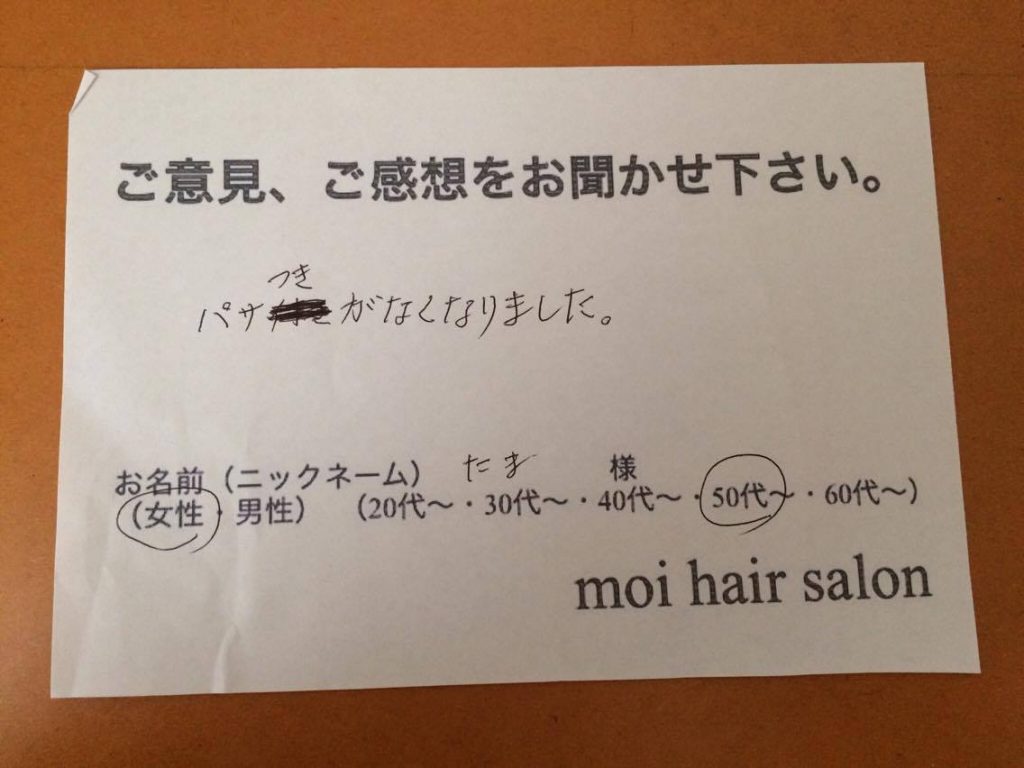 ご意見、ご感想をお聞かせ下さい。
つき
パサがなくなりました。
お名前（ニックネーム） たま 様
（女性・男性） （20代～・30代～・40代～・50代～・60代～）
moi hair salon